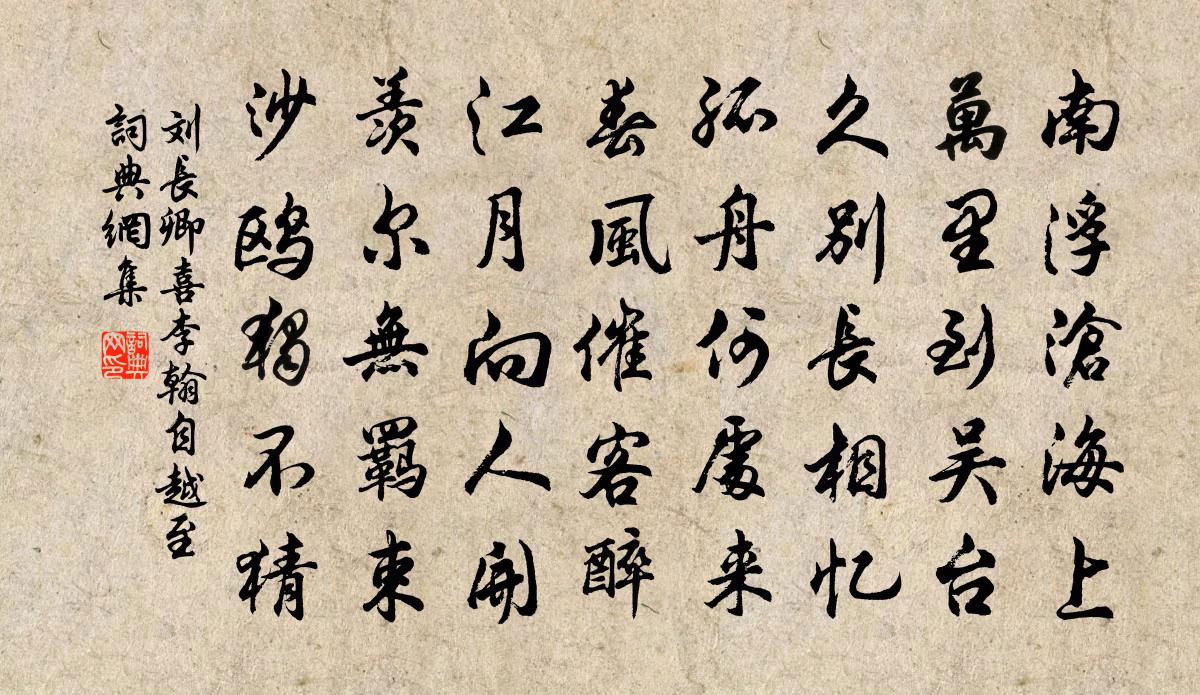 南浮滄海上
萬里到吴台
久别長相忆
孤舟何處来
春風催客醉
江月向人開
羡尔無羈束
沙鸥獨不猜
刘長卿喜李翰自越至
詞典網集
詞典网印